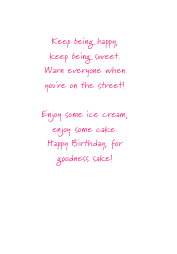 Keep being happy,
keep being sweet.
Warn everyone when
you're on the street!
Enjoy some ice cream,
enjoy some cake.
Happy Birthday, for
goodness sake!